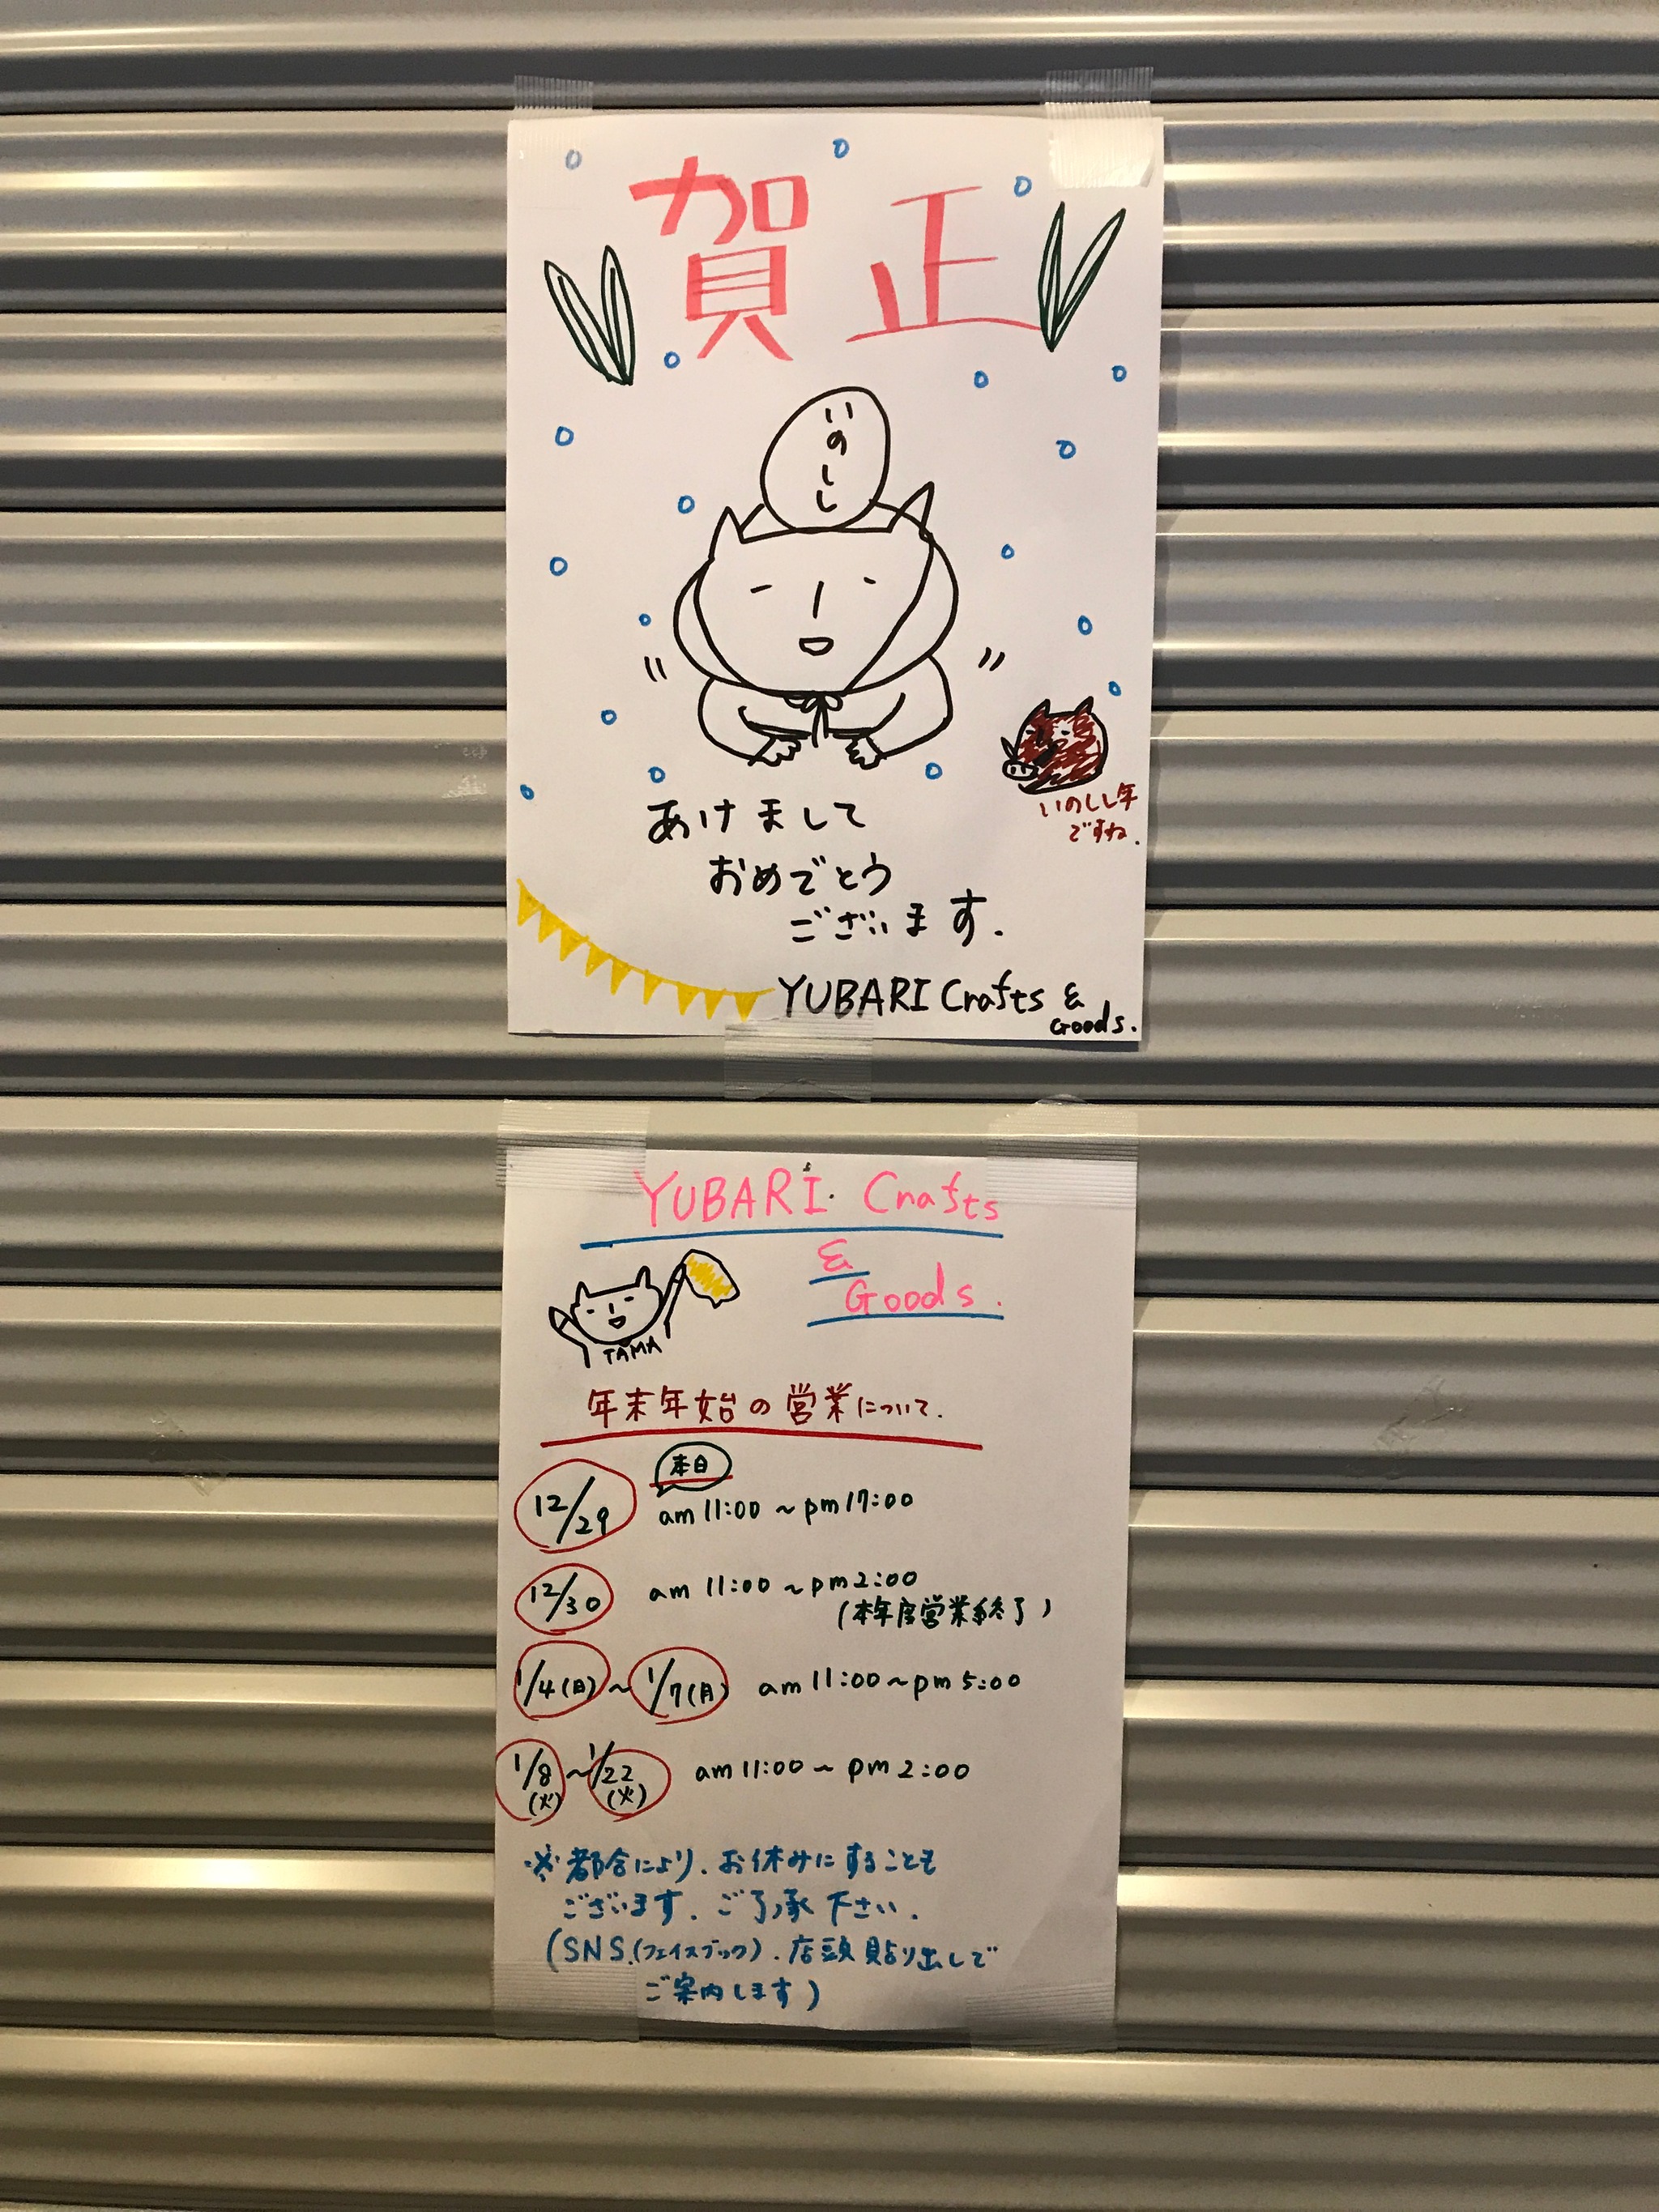 賀正
いのしし
いのしし年
ですね.
あけまして
おめでとう
ございます.
YUBARI Crafts &
Goods.
YUBARI Crafts
&
Goods.
TAMA
年末年始の営業について.
本日
12/29 am 11:00 ~ pm 17:00
12/30 am 11:00 ~ pm 2:00
(本年度営業終了)
1/4(日)~1/7(月) am 11:00~pm 5:00
1/8(火)~1/22(火) am 11:00 ~ pm 2:00
※都合により、お休みにすることも
ございます、ご了承下さい.
(SNS.(フェイスブック)、店頭貼り出しで
ご案内します)